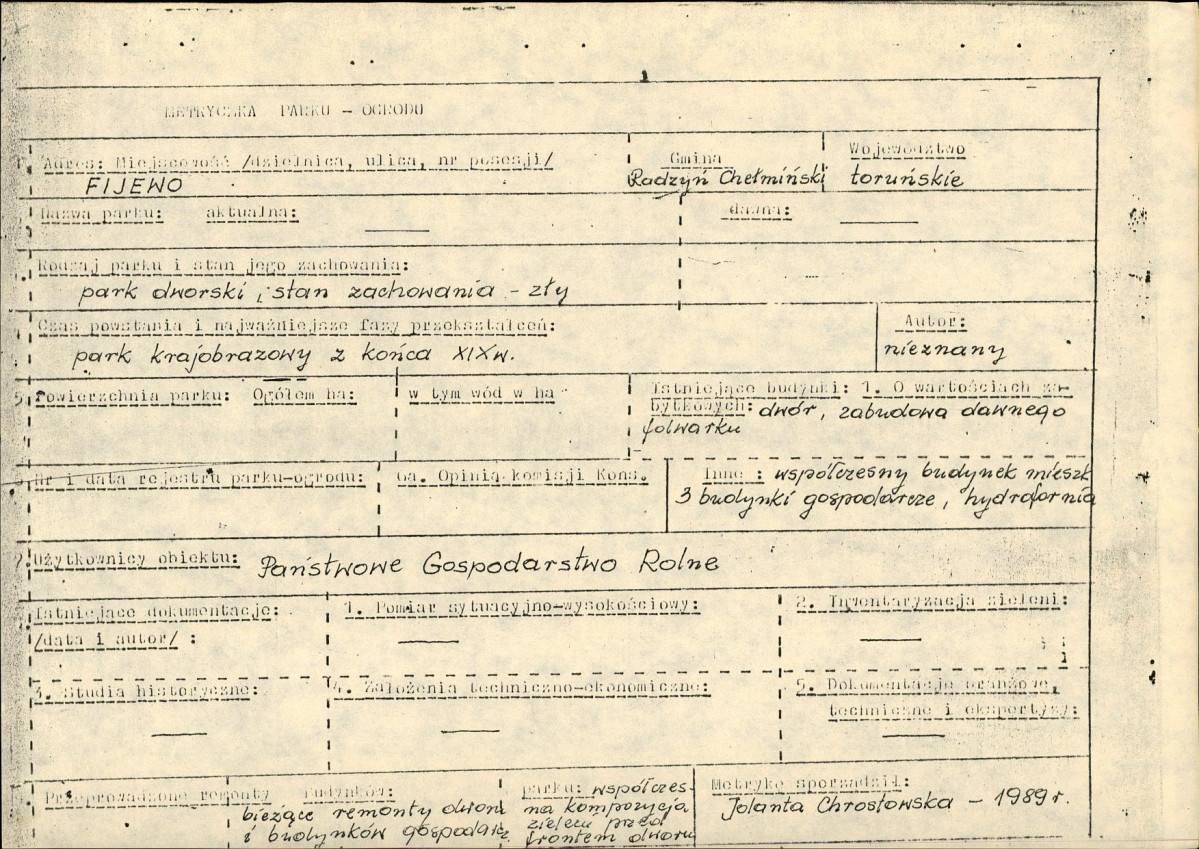 METRYCZKA PARKU - OGRODU
Adres: Miejscowość /dzielnica, ulica, nr posesji/
FIJEWO
Gmina
Radzyń Chełmiński
Województwo
toruńskie
Nazwa parku: aktualna:
—
dawna:
—
Rodzaj parku i stan jego zachowania:
park dworski, stan zachowania - zły
Czas powstania i najważniejsze fazy przekształceń:
park krajobrazowy z końca XIX w.
Autor:
nieznany
5. Powierzchnia parku: Ogółem ha:
w tym wód w ha
Istniejące budynki: 1. O wartościach za-
bytkowych: dwór, zabudowa dawnego
folwarku
Nr i data rejestru parku-ogrodu:
6a. Opinia komisji Kons.
Inne : współczesny budynek mieszk
3 budynki gospodarcze, hydrofornia
7. Użytkownicy obiektu: Państwowe Gospodarstwo Rolne
Istniejące dokumentacje:
/data i autor/ :
1. Pomiar sytuacyjno-wysokościowy:
—
2. Inwentaryzacja zieleni:
—
3. Studia historyczne:
—
4. Założenia techniczno-ekonomiczne:
—
5. Dokumentacje branżowe,
techniczne i ekspertyzy:
—
Przeprowadzone remonty
budynków:
bieżące remonty dworu
i budynków gospodarcz.
parku: współczes-
na kompozycja
zieleni przed
frontem dworu
Metrykę sporządził:
Jolanta Chrostowska - 1989 r.